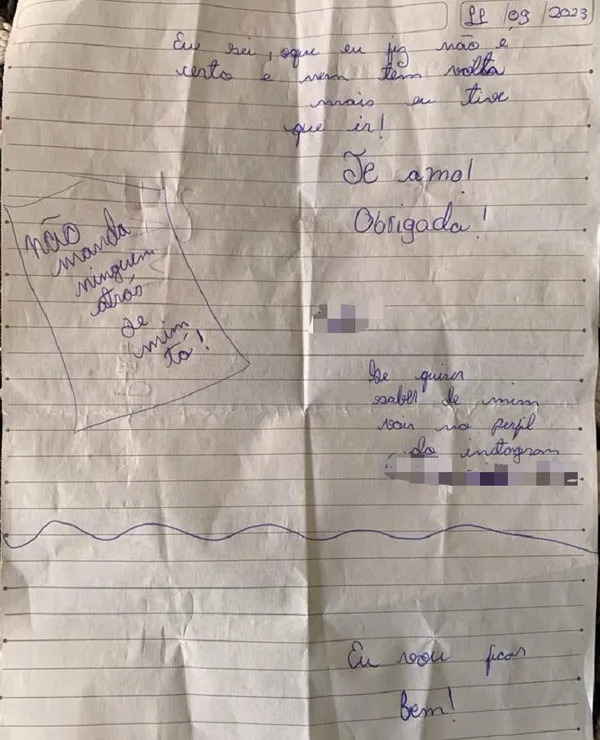 11/09/2023
Eu sei, oque eu fiz não é
certo e nem tem volta
mais eu tive
que ir!
Te amo!
Obrigada!
não
manda
ninguem
atrás
de
mim
tá!
Se quiser
saber de mim
vai no perfil
do instagram
Eu vou ficar
bem!